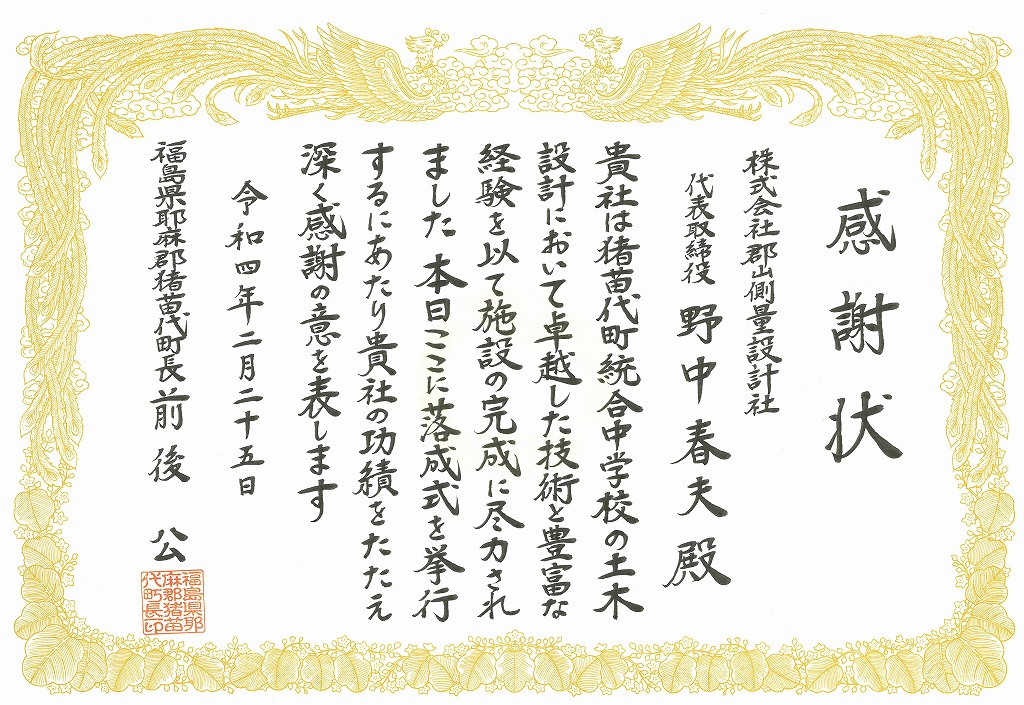 感謝状
株式会社郡山測量設計社
代表取締役 野中春夫殿
貴社は猪苗代町統合中学校の土木
設計において卓越した技術と豊富な
経験を以て施設の完成に尽力され
ました 本日ここに落成式を挙行
するにあたり貴社の功績をたたえ
深く感謝の意を表します
令和四年二月二十五日
福島県耶麻郡猪苗代町長 前後 公
福島県耶
麻郡猪苗
代町長印